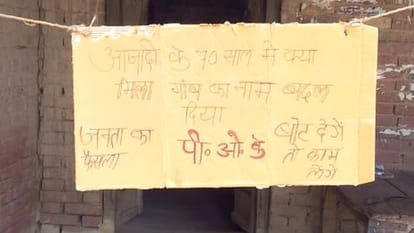 आजादी के 70 साल मे क्या
मिला गांव का नाम बदल
दिया
जनता का
फैसला
पी॰ ओ॰ के
वोट देगें
तो काम
लेगें